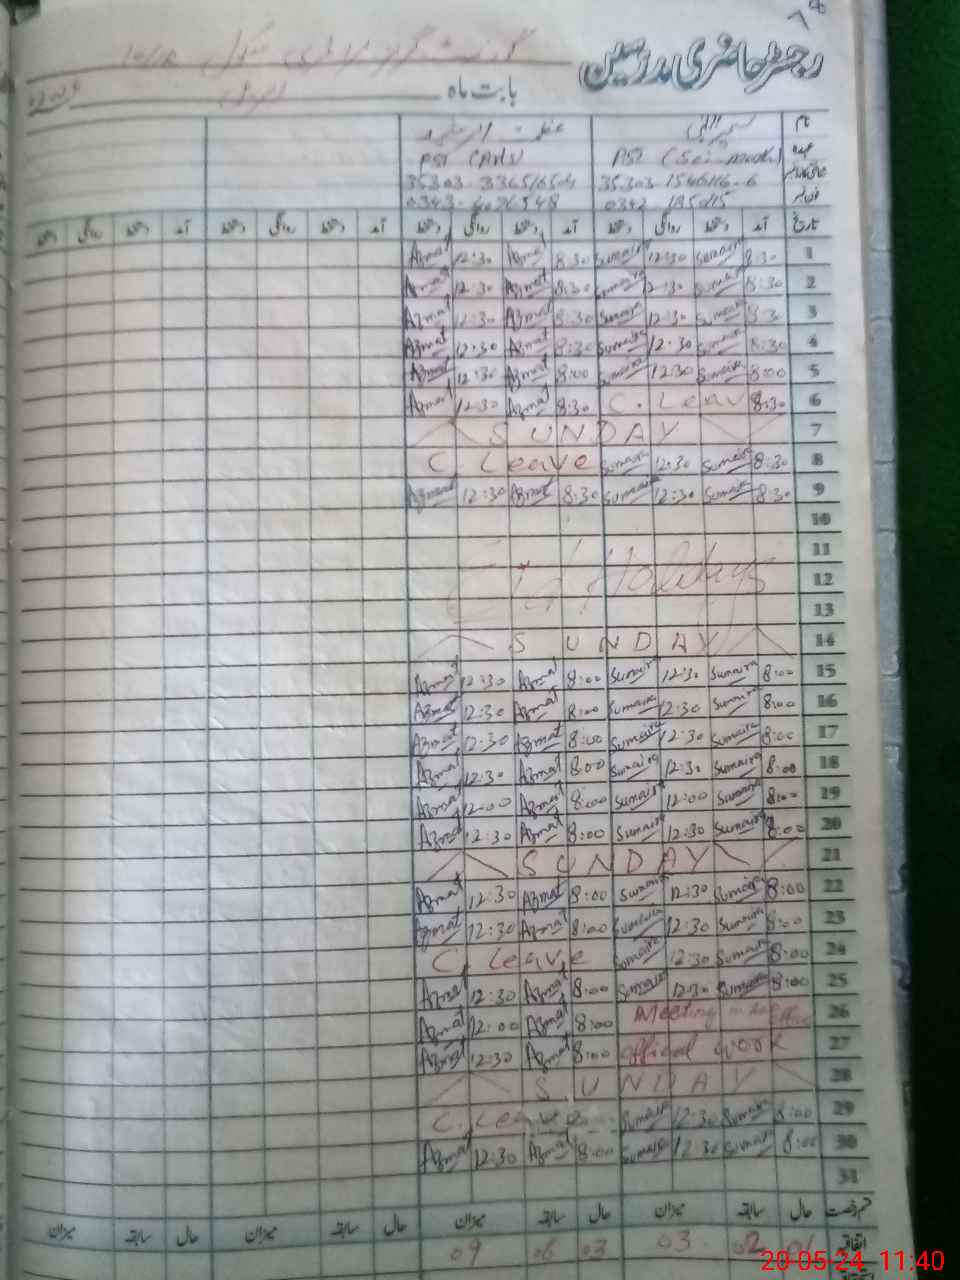 رجسٹر حاضری مدرسین
بابت ماہ
نام
عہدہ PST PST
35303-1546116-6
0343-
تاریخ آمد دستخط روانگی دستخط آمد دستخط روانگی دستخط آمد دستخط روانگی دستخط آمد دستخط روانگی دستخط
1 8:30 Sumaira 12:30 Sumaira 8:30 Azmat 12:30 Azmat
2 8:30 Sumaira 12:30 Sumaira 8:30 Azmat 12:30 Azmat
3 8:3 Sumaira 12:30 Sumaira 8:30 Azmat 12:30 Azmat
4 8:30 Sumaira 12:30 Sumaira 8:30 Azmat 12:30 Azmat
5 8:00 Sumaira 12:30 Sumaira 8:00 Azmat 12:30 Azmat
6 8:30 C. Leav 8:30 Azmat 12:30 Azmat
7 SUNDAY
8 8:30 Sumaira 12:30 Sumaira C. Leave
9 8:30 Sumaira 12:30 Sumaira 8:30 Azmat 12:30 Azmat
10
11
12 Eid Holidays
13
14 SUNDAY
15 8:00 Sumaira 12:30 Sumaira 8:00 Azmat 12:30 Azmat
16 8:00 Sumaira 12:30 Sumaira 8:00 Azmat 12:30 Azmat
17 8:00 Sumaira 12:30 Sumaira 8:00 Azmat 12:30 Azmat
18 8:00 Sumaira 12:30 Sumaira 8:00 Azmat 12:30 Azmat
19 8:00 Sumaira 12:00 Sumaira 8:00 Azmat 12:00 Azmat
20 8:00 Sumaira 12:30 Sumaira 8:00 Azmat 12:30 Azmat
21 SUNDAY
22 8:00 Sumaira 12:30 Sumaira 8:00 Azmat 12:30 Azmat
23 8:00 Sumaira 12:30 Sumaira 8:00 Azmat 12:30 Azmat
24 8:00 Sumaira 12:30 Sumaira C. Leave
25 8:00 Sumaira 12:30 Sumaira 8:00 Azmat 12:30 Azmat
26 Meeting office 8:00 Azmat 12:00 Azmat
27 official work 8:00 Azmat 12:30 Azmat
28 SUNDAY
29 8:00 Sumaira 12:30 Sumaira C. Leave
30 8:00 Sumaira 12:30 Sumaira 8:00 Azmat 12:30 Azmat
31
قسم رخصت حال سابقہ میزان حال سابقہ میزان حال سابقہ میزان حال سابقہ میزان
اتفاقیہ 01 02 03 03 06 09
20-05-24 11:40